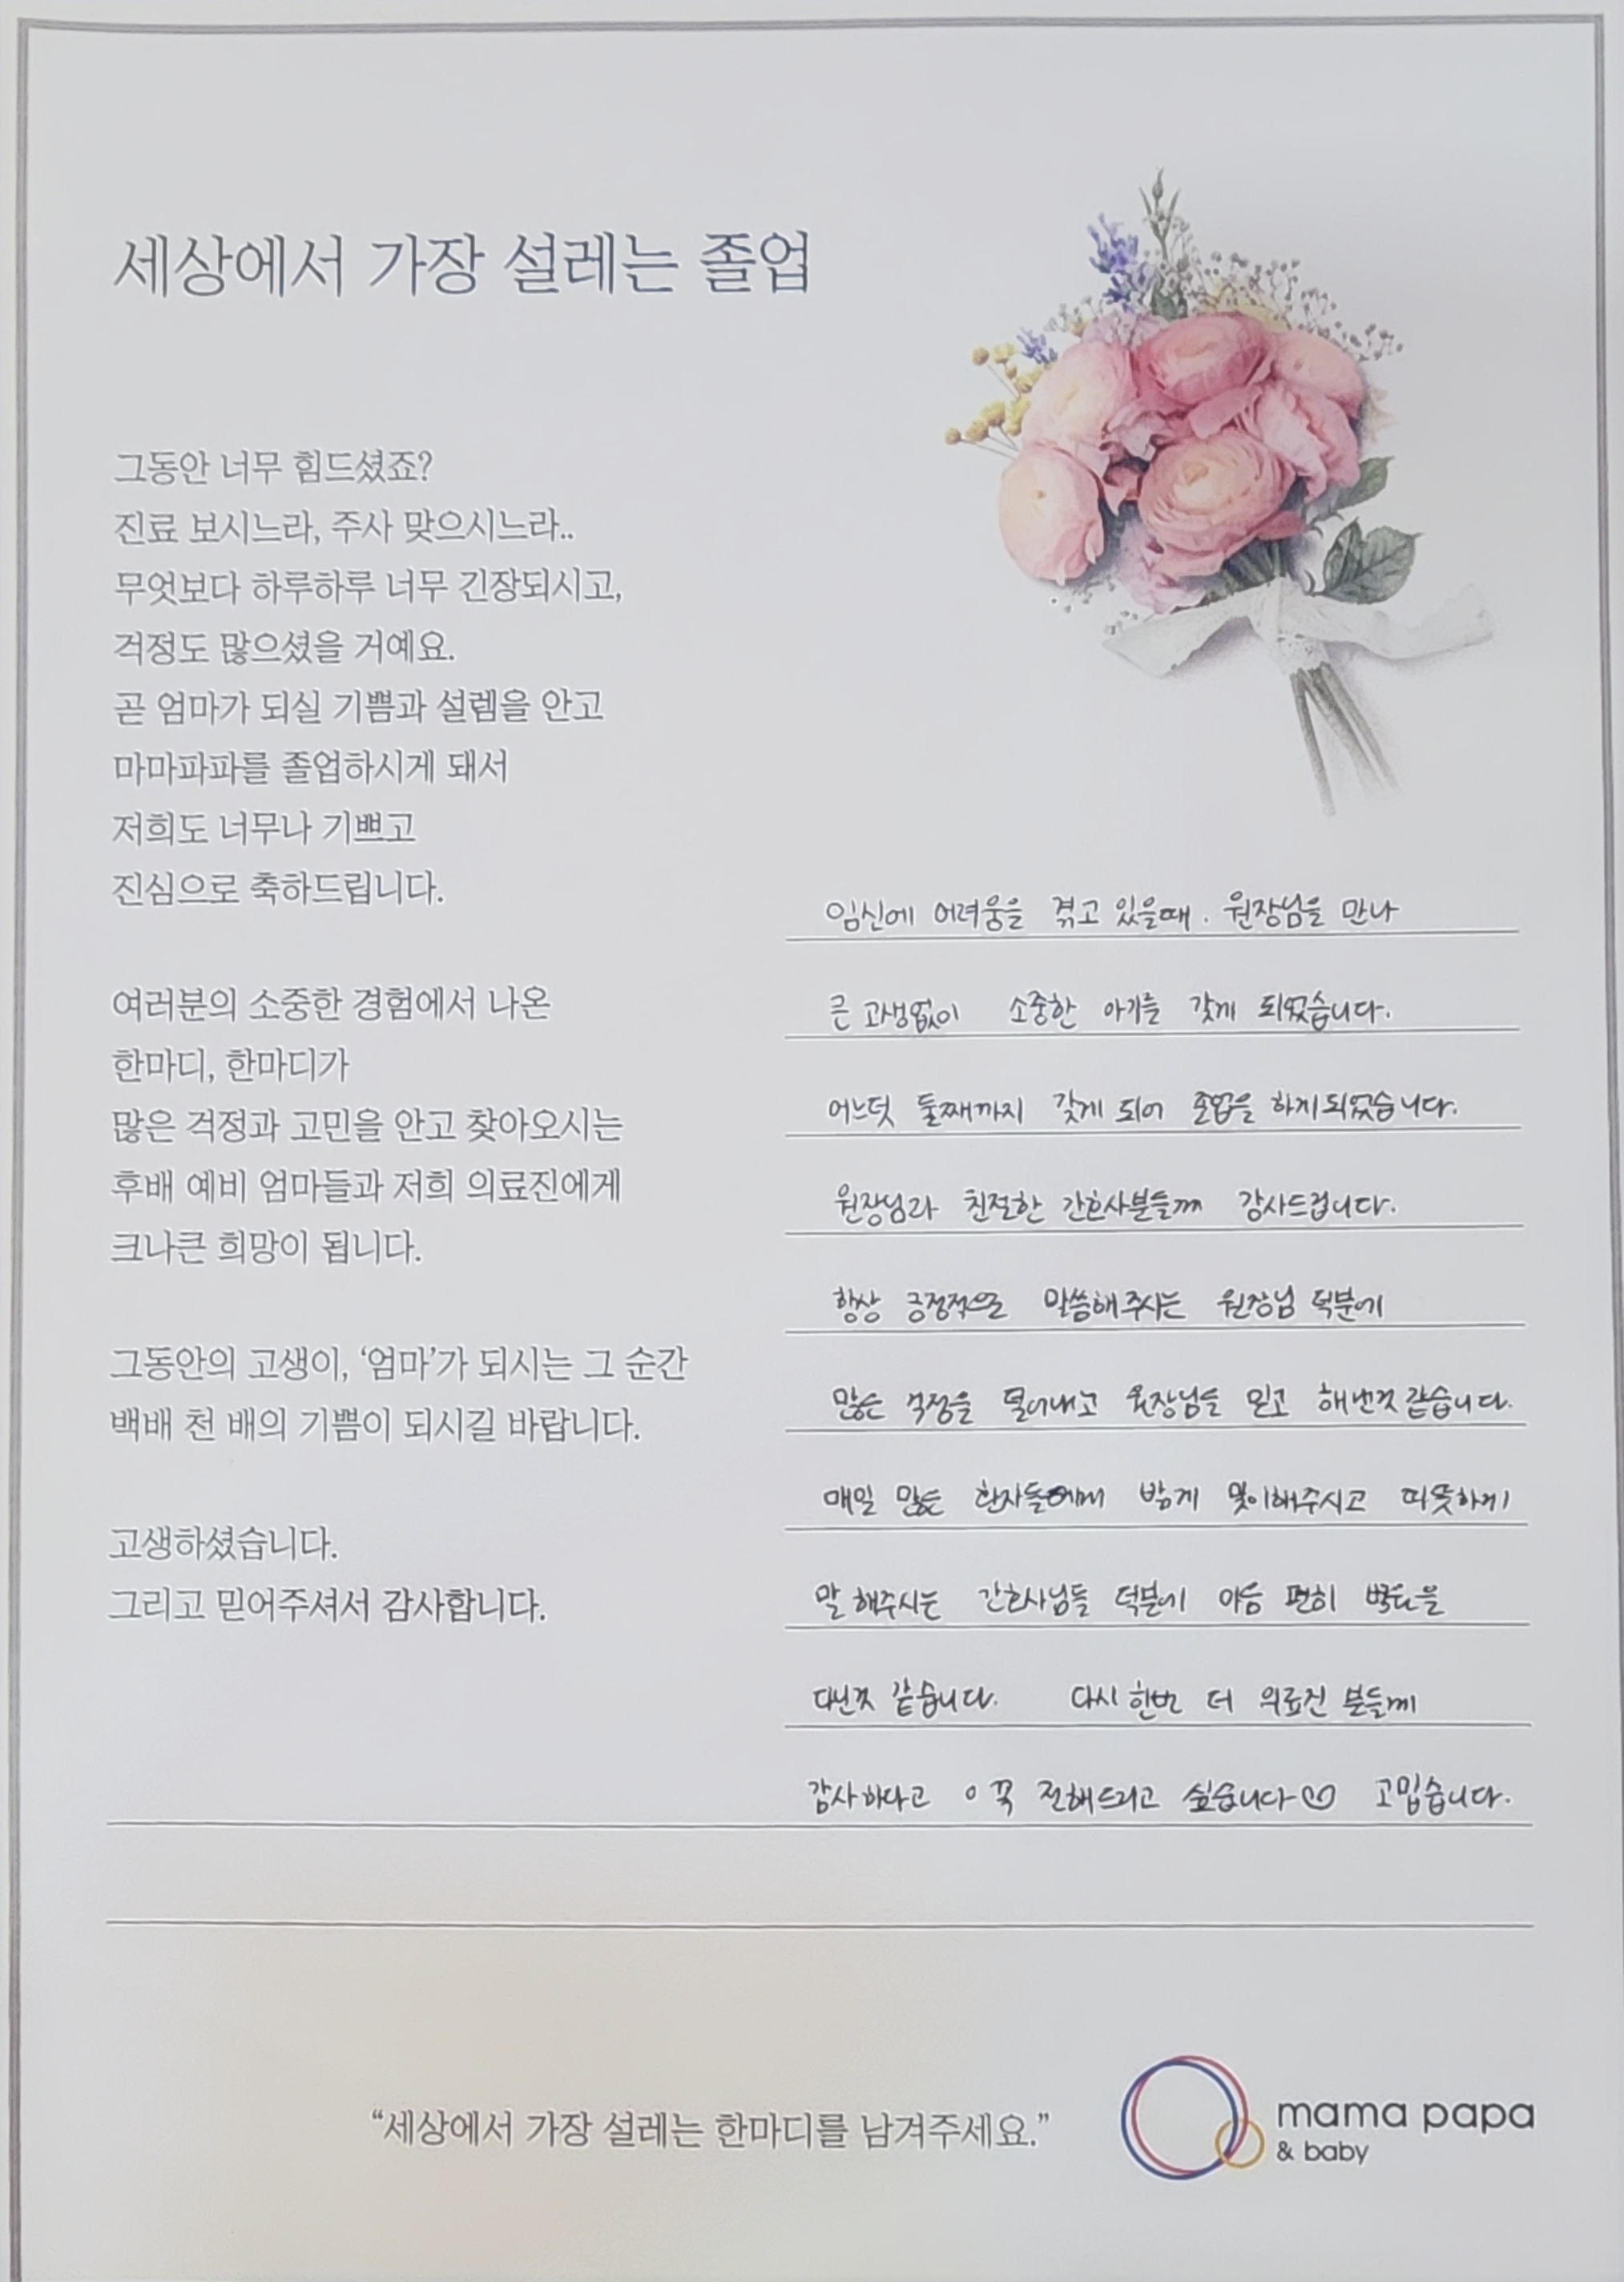 세상에서 가장 설레는 졸업
그동안 너무 힘드셨죠?
진료 보시느라, 주사 맞으시느라..
무엇보다 하루하루 너무 긴장되시고,
걱정도 많으셨을 거예요.
곧 엄마가 되실 기쁨과 설렘을 안고
마마파파를 졸업하시게 돼서
저희도 너무나 기쁘고
진심으로 축하드립니다.
여러분의 소중한 경험에서 나온
한마디, 한마디가
많은 걱정과 고민을 안고 찾아오시는
후배 예비 엄마들과 저희 의료진에게
크나큰 희망이 됩니다.
그동안의 고생이, ‘엄마’가 되시는 그 순간
백배 천 배의 기쁨이 되시길 바랍니다.
고생하셨습니다.
그리고 믿어주셔서 감사합니다.
임신에 어려움을 겪고 있을때. 원장님을 만나
큰 고생없이 소중한 아기를 갖게 되었습니다.
어느덧 둘째까지 갖게 되어 졸업을 하게되었습니다.
원장님과 친절한 간호사분들께 감사드립니다.
항상 긍정적으로 말씀해주시는 원장님 덕분에
많은 걱정을 덜어내고 원장님을 믿고 해낸것 같습니다.
매일 많은 환자들에게 밝게 맞이해주시고 따뜻하게
말 해주시는 간호사님들 덕분에 마음 편히 병원을
다닌것 같습니다. 다시 한번 더 의료진 분들께
감사하다고 꼭 전해드리고 싶습니다♡ 고맙습니다.
“세상에서 가장 설레는 한마디를 남겨주세요.”
mama papa
& baby